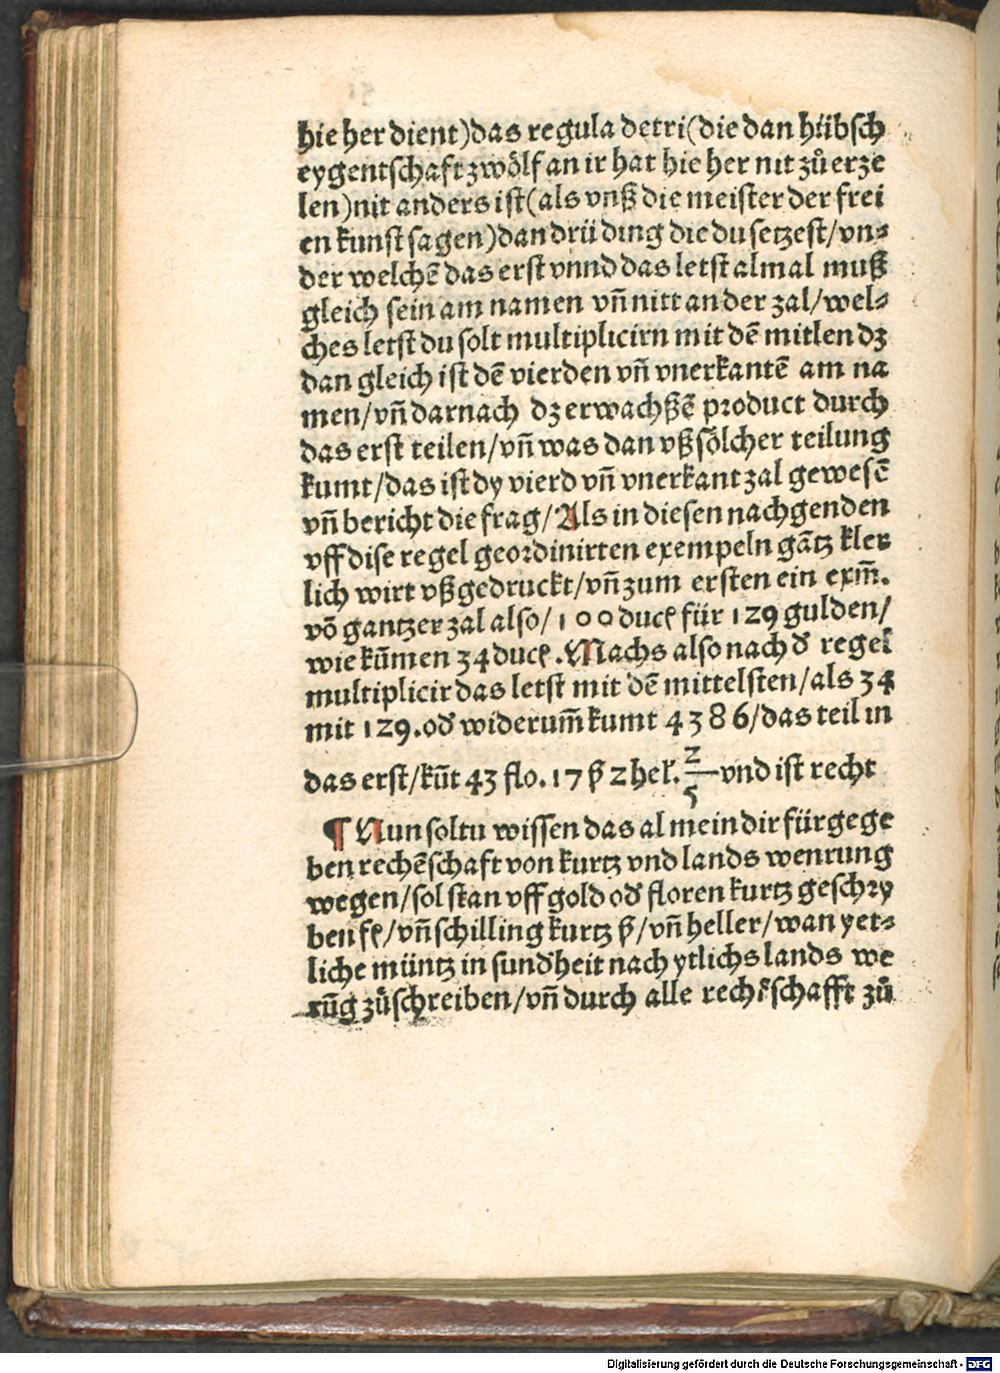 hie her dient)das regula detri(die dan hübsch
eygentschaft zwölf an ir hat hie her nit zů erze
len)nit anders ist(als vnß die meister der frei
en kunst sagen)dan drü ding die du setzest/vn⸗
der welchē das erst vnnd das letst almal muß
gleich sein am namen vn̄ nitt an der zal/wel⸗
ches letst du solt multiplicirn mit dē mitlen dz
dan gleich ist dē vierden vn̄ vnerkantē am na
men/vn̄ darnach dz erwachßē product durch
das erst teilen/vn̄ was dan vß sölcher teilung
kumt/das ist dy vierd vn̄ vnerkant zal gewesē
vn̄ bericht die frag/Als in diesen nachgenden
vff dise regel geordinirten exempeln gātz kler
lich wirt vßgedruckt/vn̄ zum ersten ein exm̄.
vō gantzer zal also/100 ducꝭ für 129 gulden/
wie kūmen 34 ducꝭ. Machs also nach đ regel
multiplicir das letst mit dē mittelsten/als 34
mit 129. ođ widerum̄ kumt 4386/das teil in
das erst/kūt 43 flo. 17 ꝭ 2 hel̄. 2/5 vnd ist recht
¶ Nun soltu wissen das al mein dir fürgege
ben rechēschaft von kurtz vnd lands wenrung
wegen/sol stan vff gold ođ floren kurtz geschry
ben fꝭ/vn̄ schilling kurtz ꝭ/vn̄ heller/wan yet⸗
liche müntz in sunđheit nach ytlichs lands we
rūg zůschreiben/vn̄ durch alle rechēschafft zů
Digitalisierung gefördert durch die Deutsche Forschungsgemeinschaft - DFG